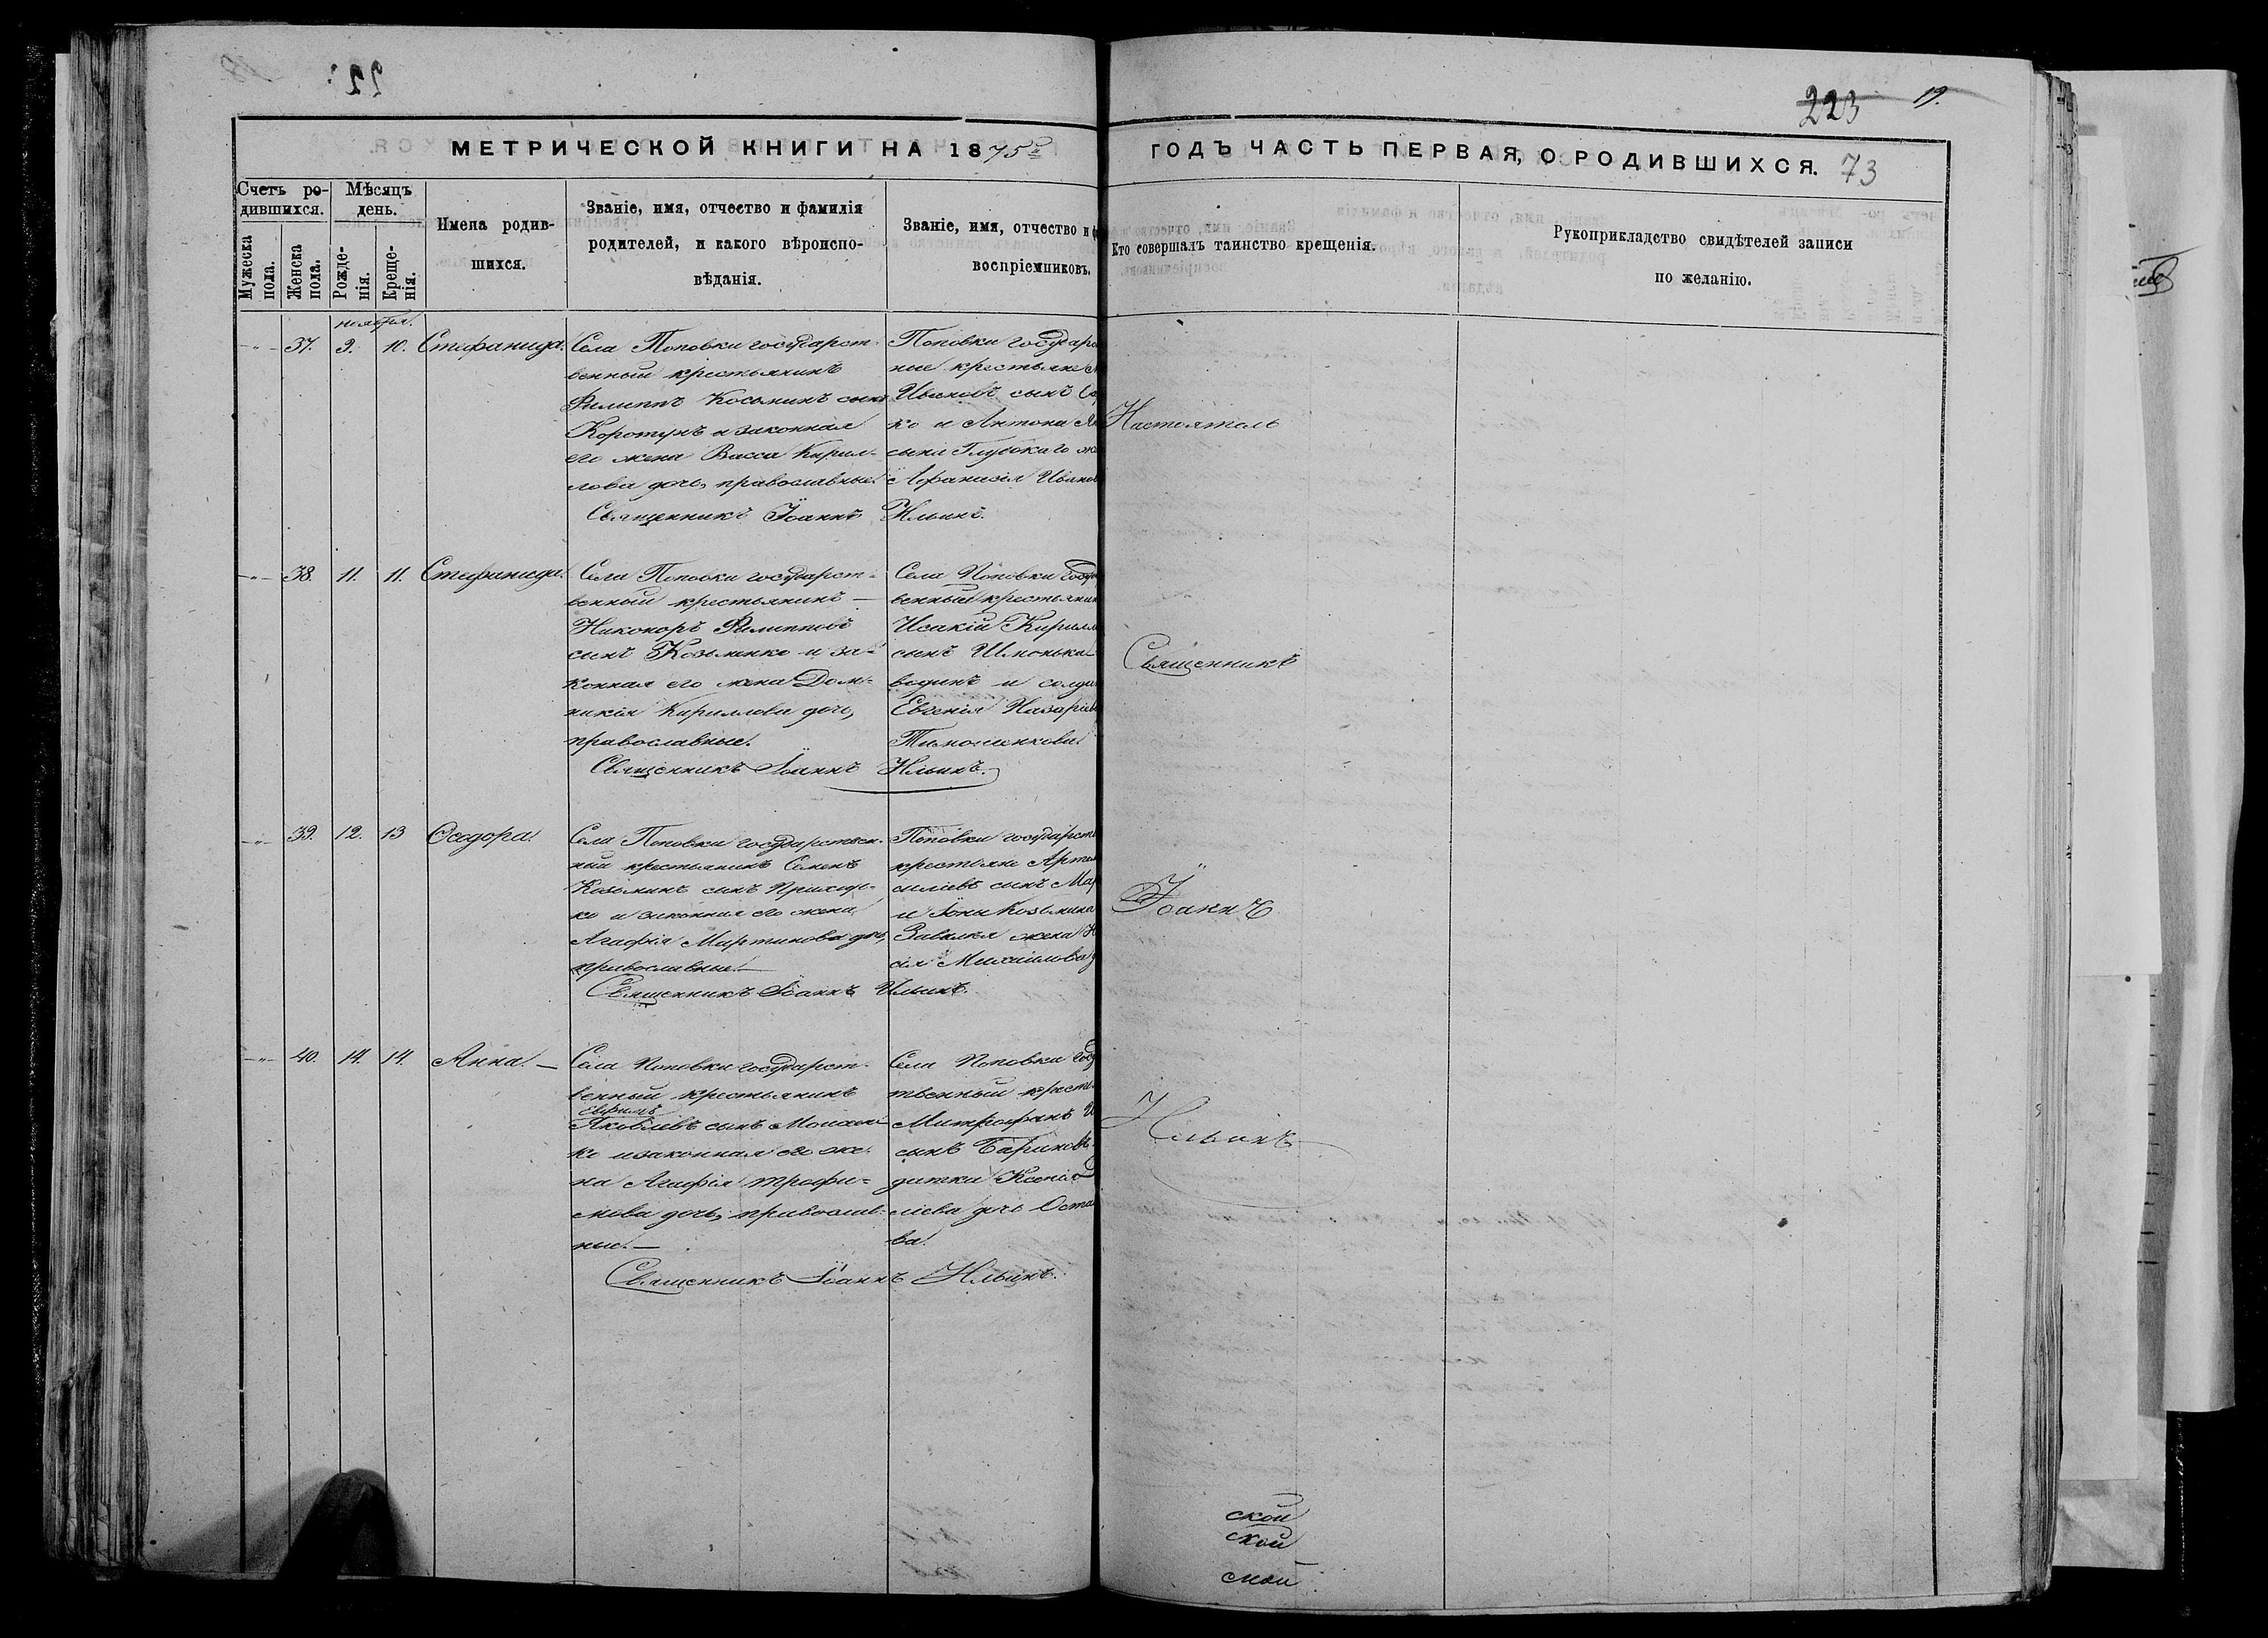 223 19.
МЕТРИЧЕСКОЙ КНИГИ НА 1875
ГОДЪ ЧАСТЬ ПЕРВАЯ, О РОДИВШИХСЯ. 73
Счетъ ро-
дившихся.
Мужеска
пола.
Женска
пола.
Мѣсяцъ
день.
Рожде-
нія.
Креще-
нія.
Имена родив-
шихся.
Званіе, имя, отчество и фамилія
родителей, и какого вѣроиспо-
вѣданія.
Званіе, имя, отчество и ф
воспріемниковъ.
Кто совершалъ таинство крещенія.
Рукоприкладство свидѣтелей записи
по желанію.
ноября.
37. 9. 10. Стефанида.
Села Поповки государст-
венный крестьянинъ
Филиппъ Косьминъ сынъ
Коротунъ и законная
его жена Васса Кирил-
лова дочь, православные.
Поповки государс
ные крестьяне
Ивановъ сынъ
ко и Антона
сына Глубокаго же
Афанасія Иванов
Священникъ Іоаннъ Ильинъ.
38. 11. 11. Стефанида.
Села Поповки государст-
венный крестьянинъ
Никоноръ Филипповъ
сынъ Козьменко и за-
конная его жена Дом-
никія Кириллова дочь,
православные.
Села Поповки госуд
венный крестьянин
Исакій Кирилл
сынъ Шпонька
и солда
Евгенія Назаріев
Тимошенкова.
Священникъ Іоаннъ Ильинъ.
39. 12. 13 Ѳеодора.
Села Поповки государствен-
ный крестьянинъ Семенъ
Козьминъ сынъ Приходь-
ко и законная его жена
Агафія Мартинова дочь,
православные.
Поповки государств
крестьяне Артем
силіевъ сынъ Мар
и Іоны Козьмина
жена
сія Михаилова д
Священникъ Іоаннъ Ильинъ.
40. 14. 14. Анна.
Села Поповки государст-
венный крестьянинъ
Ефимъ
Яковлевъ сынъ
ко и законная его же-
на Агафія Трофи-
мова дочь, православ-
ные.
Села Поповки госу
твенный кресть
Митрофанъ И
сынъ Бариновъ
датка Ксенія
сіева дочь Оста
ва.
Священникъ Іоаннъ Ильинъ.
Настоятель
Священникъ
Іоаннъ
Ильинъ
ской
ской